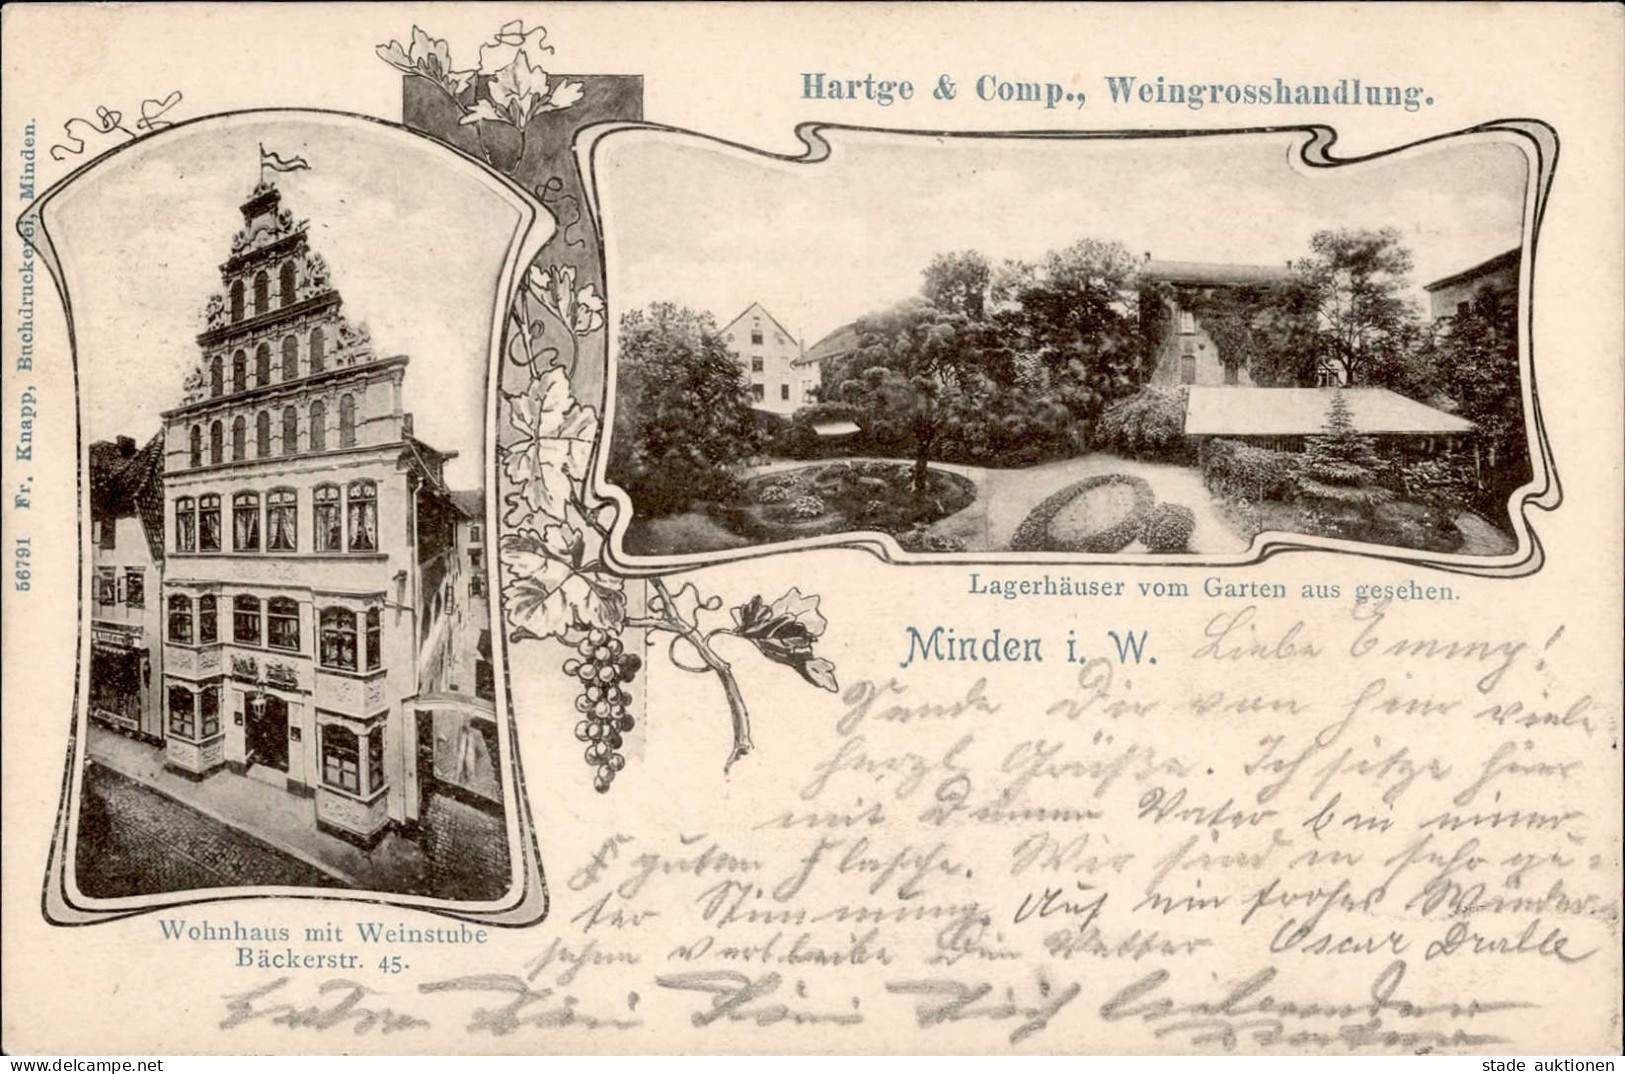 Hartge & Comp., Weingrosshandlung.
56791 Fr. Knapp, Buchdruckerei, Minden.
Lagerhäuser vom Garten aus gesehen.
Minden i. W.
Liebe Emmy!
Sende Dir von hier viele
herzl Grüße. Ich sitze hier
mit Deinem Vater bei einer
guten Flasche. Wir sind in sehr gu-
ter Stimmung. Auf ein frohes Wieder-
sehen verbleibe Dein Vetter Oscar Dralle
Wohnhaus mit Weinstube
Bäckerstr. 45.
Dein Dich liebender
stade auktionen